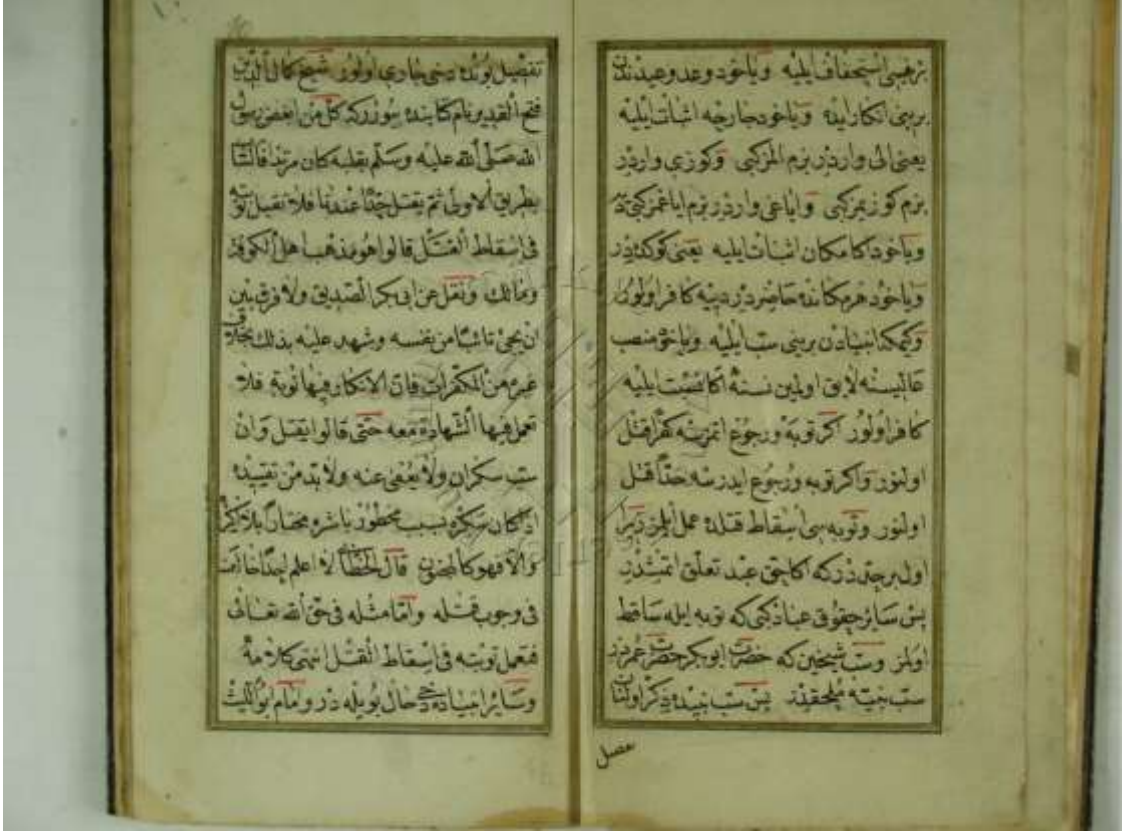 برنبیی استخفاف ایلیه ویاخود وعد وعیدندن
برینی انکار ایده ویاخود جارحه اثبات ایلیه
یعنی الی واردر بزم المز کبی وکوزی واردر
بزم کوزیمز کبی وایاغی واردر بزم ایاغمز کبی دیه
ویاخود اکا مکان اثبات ایلیه یعنی کوکده در
ویاخود هر مکانده حاضردر دییه کافر اولور
وکیمکه انبیادن برینی سب ایلیه ویاخود منصب
عالیسنه لایق اولمین نسنه اکا نسبت ایلیه
کافر اولور اکر توبه ورجوع اتمزیسه کفراً قتل
اولنور واکر توبه ورجوع ایدرسه حداً قتل
اولنور وتوبه سی اسقاط قتلده عمل ایلمز زیرا
اول بر حددر که اکا حق عبد تعلق اتمشدر
پس سایر حقوق عباد کبی که توبه ایله ساقط
اولمز وسب شیخین که حضرت ابوبکر حضرت عمردر
سب نبیه ملحقدر پس سب نبیده ذکر اولنان
تفصیل بونده دخی جاری اولور شیخ کمال الدین
فتح القدیر نام کتابنده بیورر که کل من ابغض رسول
الله صلی الله علیه وسلم بقلبه کان مرتدا فالساب
بطریق الاولی ثم یقتل حدا عندنا فلا تقبل توبته
فی اسقاط القتل قالوا هو مذهب اهل الکوفة
ومالک ونقل عن ابی بکر الصدیق ولا فرق بین
ان یجئ تائبا من نفسه وشهد علیه بذلک بخلاف
غیره من المکفرات فان الانکار فیها توبة فلا
تعمل فیها الشهادة معه حتی قالوا یقتل وان
سب سکران ولا یعفی عنه ولا بد من تقییده
اذا کان سکره بسبب محظور باشره مختارا بلا اکراه
والا فهو کالمجنون قال الخطابی لا اعلم احدا خالف
فی وجوب قتله واما مثله فی حق الله تعالی
فتعمل توبته فی اسقاط القتل انتهی کلامه
وسایر انبیاده دخی حال بویله در وامام ابو اللیث